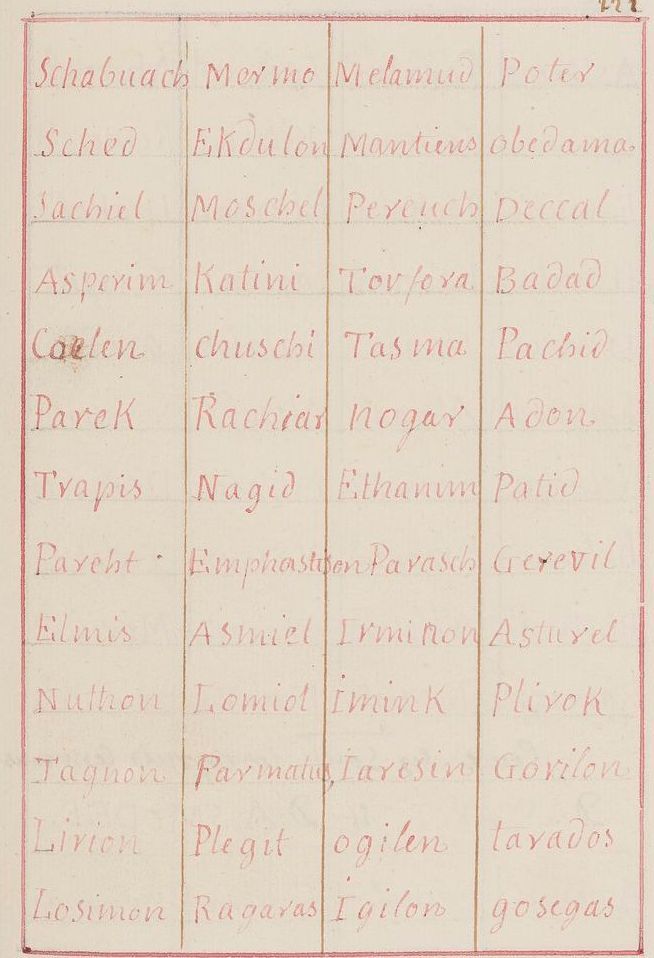 Schabuach Mermo Melamud Poter
Sched Ekdulon Mantiens obedama.
Sachiel Moschel Pereuch Deccal
Asperim Katini Torfora Badad
Coelen chuschi Tasma Pachid
Parek Rachiar nogar Adon
Trapis Nagid Ethanim Patid
Pareht Emphastison Parasch Gerevil
Elmis Asmiel Irminon Asturel
Nuthon Lomiol Imink Plirok
Tagnon Parmatus, Iaresin Gorilon
Lirion Plegit ogilen tarados
Losimon Ragaras Igilon gosegas